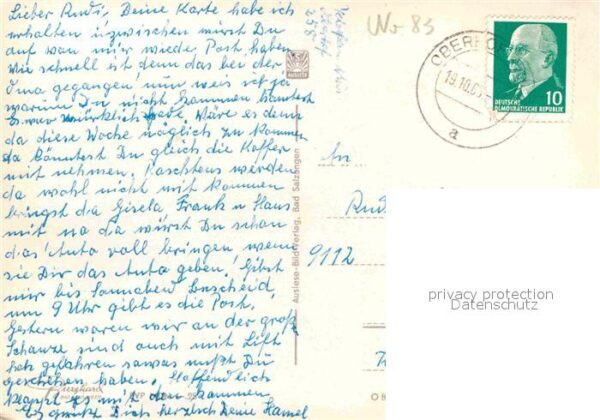 Lieber Rudi, Deine Karte habe ich
erhalten inzwischen wirst Du
auf von mir wieder Post haben
wie schnell ist denn das bei der
Oma gegangen nun weis ich ja
warum Du nicht kommen konntest
Es war wirklich Wäre es denn
da diese Woche möglich zu kommen
da könntest Du gleich die Koffer
mit nehmen. werden
da wohl nicht mit kommen
bringst da Gisela Frank u Hans
mit na da würst Du schon
das Auto voll bringen wenn
sie Dir das Auto geben! Gibst
mir bis Sonnabend bescheid
um 9 Uhr gibt es die Post,
Gestern waren wir an der groß
Schanze sind auch mit Lift
gefahren sowas mußt Du
gesehen haben. Hoffendlich
klappt es mit den kommen
Es grüßt Dich herzlich Deine
Wo 83
OBERHO
19.10.6
a
DEUTSCHE
DEMOKRATISCHE REPUBLIK
10
AUSLESE
Auslese-Bild-Verlag, Bad Salzungen
An
Rudi
9112
privacy protection
Datenschutz